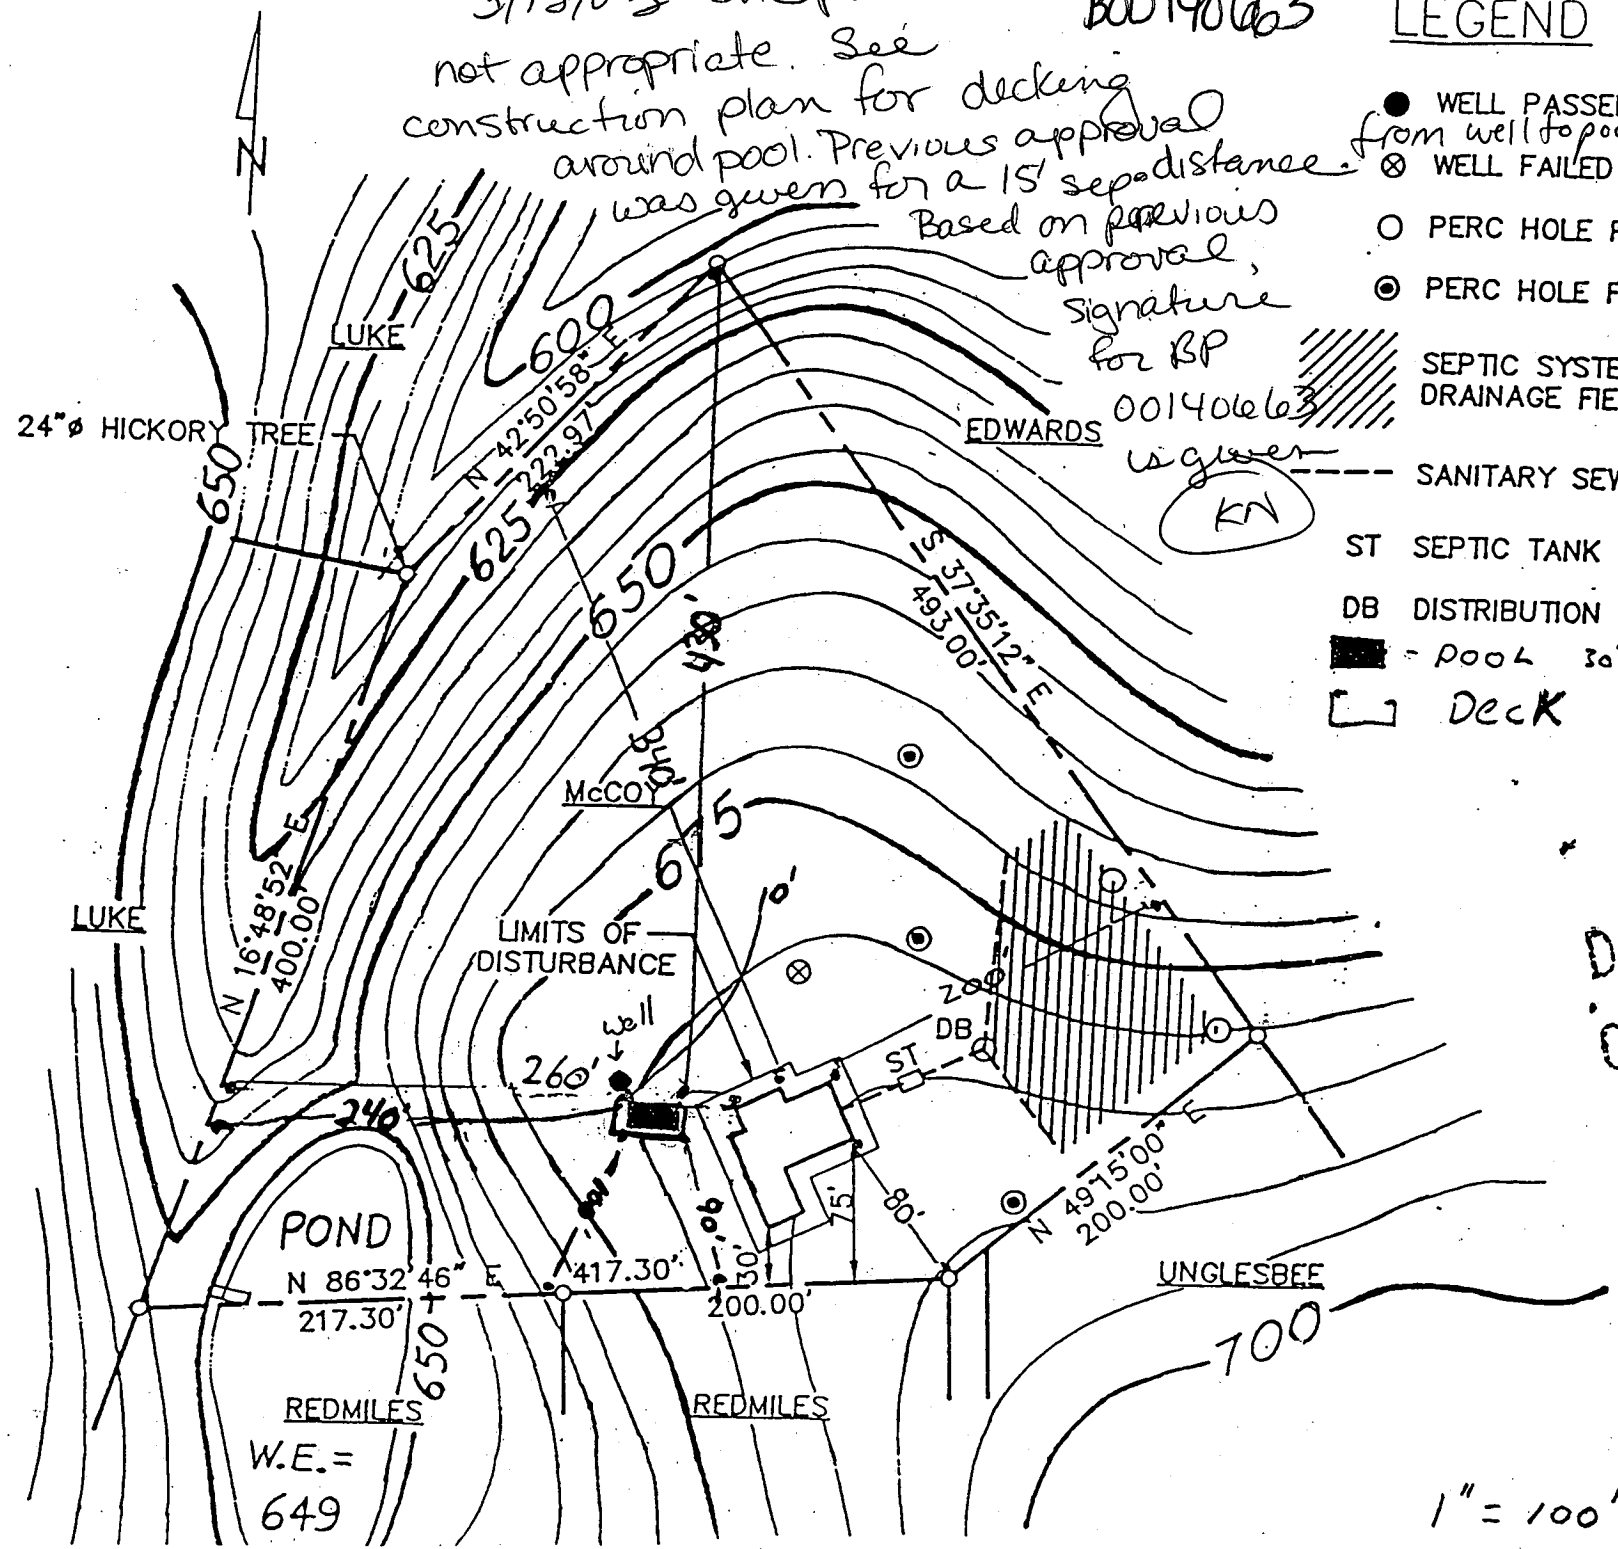 not appropriate. See
construction plan for decking
around pool. Previous approval
was given for a 15' sep. distance.
from well to poo
Based on previous
approval,
signature
for BP
001406663
is given
KN
LEGEND
WELL PASSE
WELL FAILED
PERC HOLE
PERC HOLE F
SEPTIC SYSTE
DRAINAGE FIE
SANITARY SEW
ST SEPTIC TANK
DB DISTRIBUTION
- POOL 30'
DecK
N
625
LUKE
600
24"ø HICKORY TREE
650
N 42°50'58" E
222.97'
625
650
EDWARDS
S 37°35'12" E
493.00'
430'
340'
McCOY
675
LUKE
N 16°48'52" E
400.00'
LIMITS OF
DISTURBANCE
10'
200'
DB
ST
well
260'
240'
POND
N 86°32'46" E
217.30'
417.30'
200.00'
90'
30'
75'
80'
N 49°15'00" E
200.00'
UNGLESBEE
700
650
REDMILES
REDMILES
W.E.=
649
1" = 100'